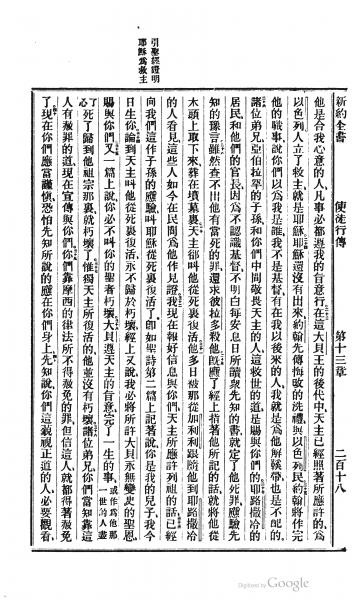 新約全書　使徒行傳　第十三章　二百十八
引聖經證明
耶穌爲救主
他是合我心意的人、凡事必都遵我的旨意行、在這大闢王的後代中、天主已經照著所應許的、爲
以色列人、立了救主、就是耶穌、耶穌還沒有出來、約翰先傳悔改的洗禮、與以色列民、約翰將作完
他的職事、說、你們以爲我是誰、我不是基督、有在我以後來的人、我就是爲他解鞋帶、也是不配的、
諸位弟兄、亞伯拉罕的子孫、和你們中間敬畏天主的人、這救世的道、是賜與你們的、耶路撒冷
居民、和他們的官長、因爲不認識基督、不明白每安息日所讀衆先知的書、就定了他死罪、應驗先
知的豫言、雖然查不出他有當死的罪、還求彼拉多殺他、旣應了經上指著他所記的話、就將他從
木頭上取下來、葬在墳墓裏、天主卻叫他從死裏復活、他多日被那從加利利跟隨他到耶路撒冷
的人看見、這些人如今在民間爲他作見證、我現在報好信息與你們、天主所應許列祖的話、已經
向我們這作子孫的應驗、叫耶穌從死裏復活了、卽如聖詩第二篇上記著說、你是我的兒子、我今
日生你、論到天主叫他從死裏復活、永不歸於朽壞、經上又說、我必將所許大闢永無變更的聖恩、
賜與你們、又一篇上說、你必不叫你的聖者朽壞、大闢遵天主的旨意、完了一生的事、或作爲他那一世的人盡
心死了、歸到他祖宗那裏、就朽壞了、惟獨天主所復活的、他並沒有朽壞、諸位弟兄、你們當知靠這
人有赦罪的道、現在宣傳與你們、你們靠摩西的律法所不得赦免的罪、但信這人、就都得著赦免
了、現在你們應當謹愼、恐怕先知所說的應在你們身上、先知說、你們這藐視正道的人、必要觀看、
Digitized by Google